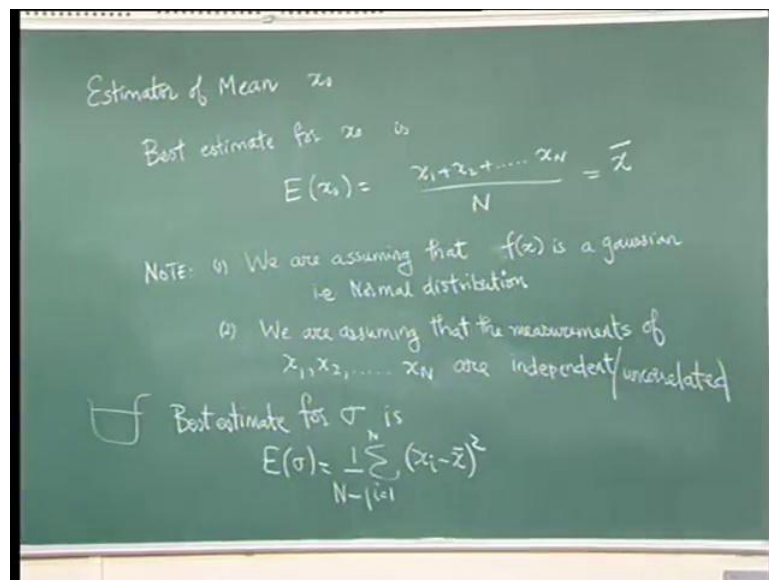 Estimator of Mean x₀
Best estimate for x₀ is
E(x₀) = (x₁+x₂+..... x_N)/N = x̄
NOTE: (1) We are assuming that f(x) is a gaussian
i.e Normal distribution
(2) We are assuming that the measurements of
x₁, x₂, ..... x_N are independent/uncorrelated
Best estimate for σ is
E(σ) = 1/(N-1) Σ_{i=1}^{N} (x_i - x̄)²